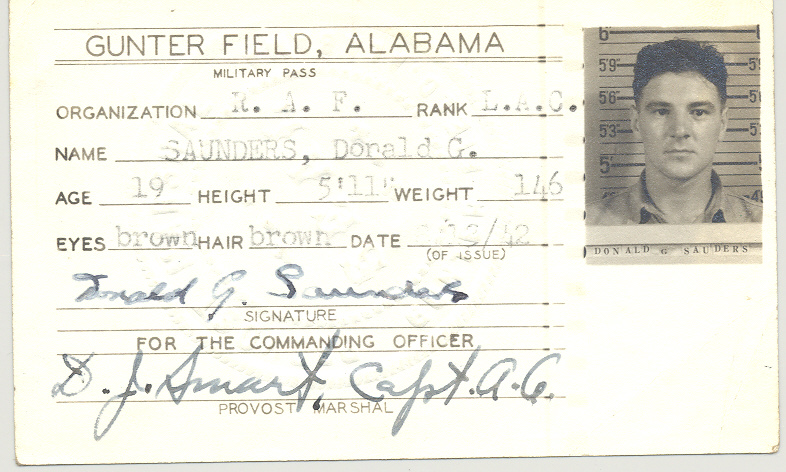 GUNTER FIELD, ALABAMA
MILITARY PASS
ORGANIZATION R. A. F. RANK L.A.C.
NAME SAUNDERS, Donald G.
AGE 19 HEIGHT 5'11" WEIGHT 146
EYES brown HAIR brown DATE /42
(OF ISSUE)
Donald G. Saunders
SIGNATURE
FOR THE COMMANDING OFFICER
D. J. Smart, Capt. A.C.
PROVOST MARSHAL
6'
5'9" 5'9
5'6 5
5'3 5
5' 5
4
DONALD G SAUDERS